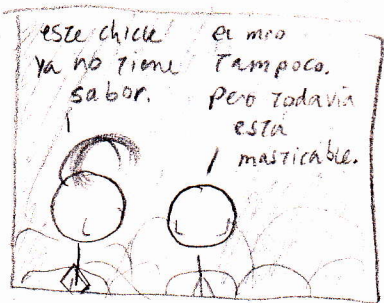 este chicle
ya no tiene
sabor.
el mio
tampoco.
pero todavia
esta
masticable.